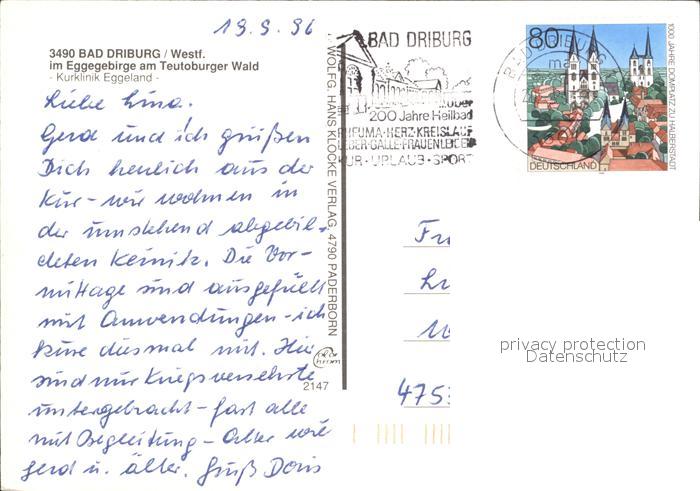 19.9.96
3490 BAD DRIBURG / Westf.
im Eggegebirge am Teutoburger Wald
- Kurklinik Eggeland -
Liebe Lina.
Gerd und ich grüßen
Dich herzlich aus der
Kur - wir wohnen in
der umstehend abgebil-
deten Keinitz. Die Vor-
mittage sind ausgefüllt
mit Anwendungen - ich
kure diesmal mit. Hier
sind nur Kriegsversehrte
untergebracht - fast alle
mit Begleitung - Alter wie
Gerd u. älter. Gruß Doris
WOLFG. HANS KLOCKE VERLAG, 4790 PADERBORN
2147
BAD DRIBURG
über
200 Jahre Heilbad
RHEUMA·HERZ·KREISLAUF
LEBER·GALLE·FRAUENLEIDEN
KUR·URLAUB·SPORT
BAD DRIBURG
80
DEUTSCHLAND
1000 JAHRE DOMPLATZ ZU HALBERSTADT
475
privacy protection
Datenschutz